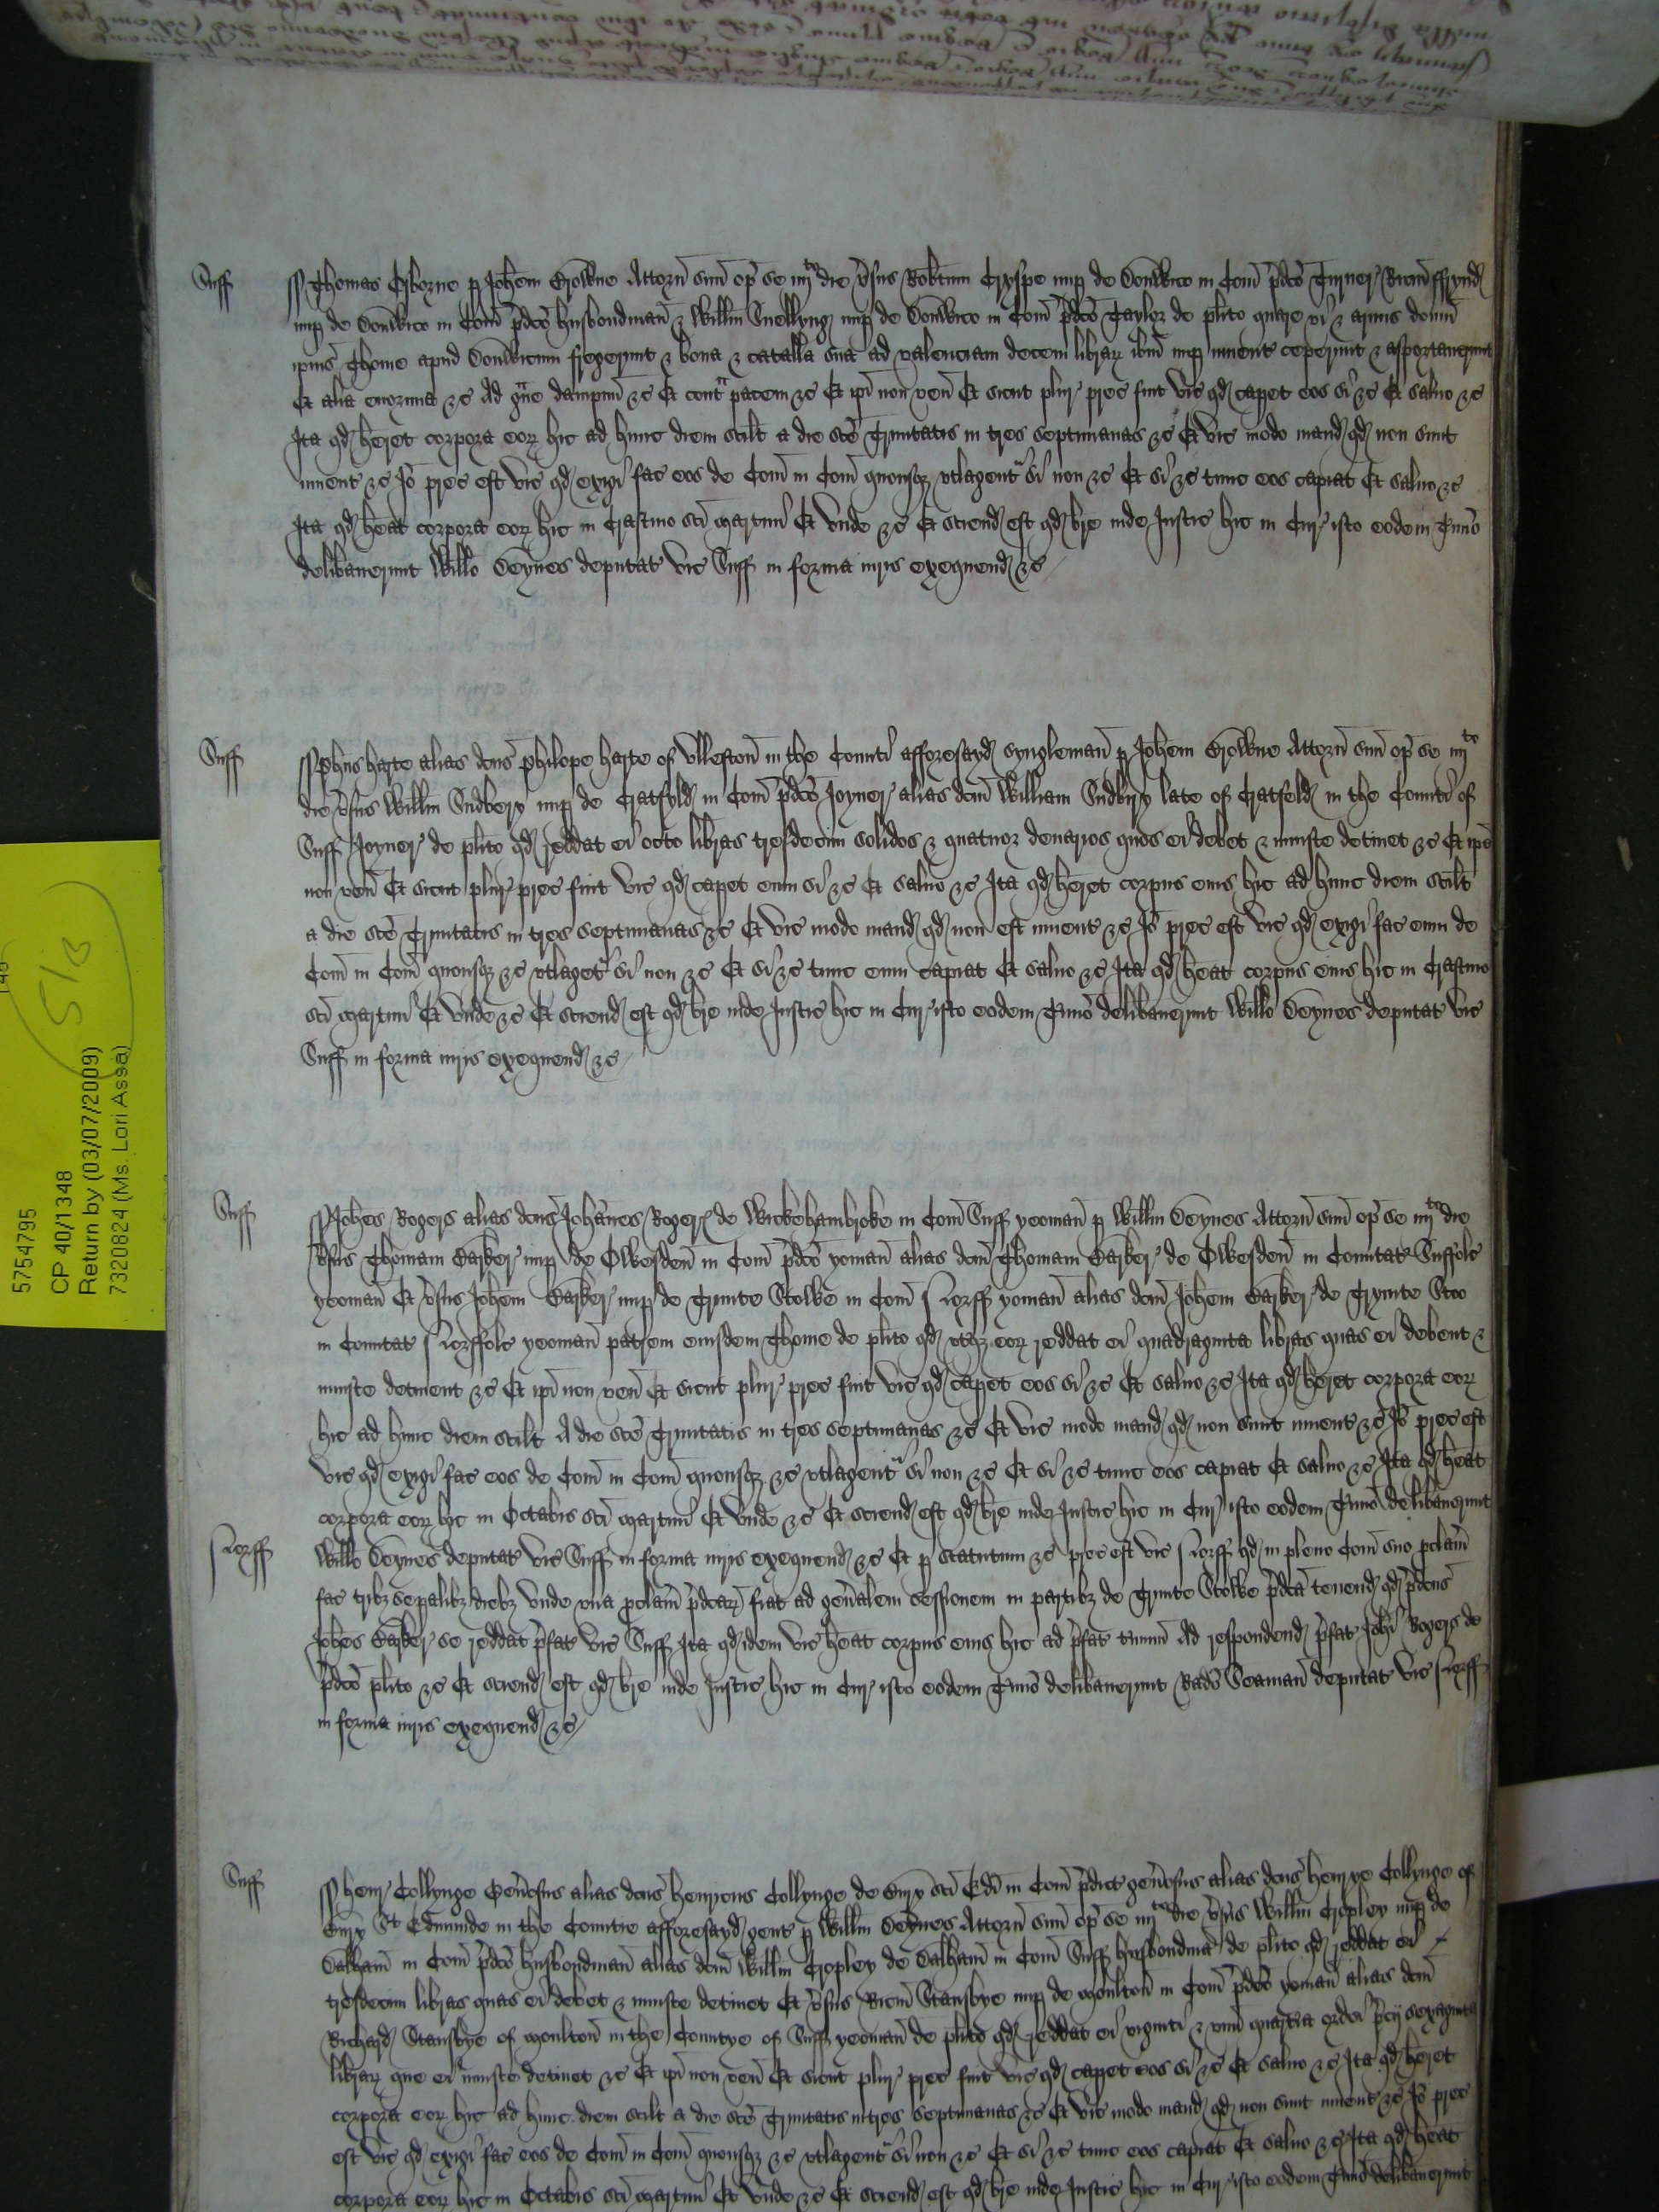 Suff Thomas Osborne p Johem Browne Attorn suu op se iiijto die vsus Robtum Cryspe nup de Donwico in Com pdco Turner Ricm ffrynd
nup de Donwico in Com pdco husbondman & Willm Snellyng nup de Donwico in Com pdco Taylor de plito quare vi & armis domu
ipius Thome apud Donwicum fregerunt & bona & catalla sua ad valenciam decem librar ibm nup invent ceperunt & asportaverunt
Et alia enormia &c Ad gve dampnu &c Et contr pacem &c Et ipi non ven Et sicut plur prec fuit vic qd capet eos si &c Et salvo &c
Ita qd heret corpora eor hic ad hunc diem scilt a die sce Trinitatis in tres septimanas &c Et vic modo mand qd non sunt
invent &c Jo prec est vic qd exigi fac eos de Com in Com quousq utlagent si non &c Et si &c tunc eos capiat Et salvo &c
Ita qd heat corpora eor hic in Crastino sci Martini Et unde &c Et sciend est qd bre inde Justic hic in Cur isto eodem Tmio
delibaverunt Willo Deynes deputat vic Suff in forma iuris exequend &c
Suff Phus harte alias dcus Philope harte of Ulleston in the Counti afforesayd syngleman p Johem Browne Attorn suu op se iiijto
die vsus Willm Sudbery nup de Cratfyld in Com pdco Joyner alias dcm William Sudbury late of Cratfeld in the Counti of
Suff Joyner de plito qd reddat ei octo libras tresdecim solidos & quatuor denarios quos ei debet & iniuste detinet &c Et ipe
non ven Et sicut plur prec fuit vic qd capet eum si &c Et salvo &c Ita qd heret corpus eius hic ad hunc diem scilt
a die sce Trinitatis in tres septimanas &c Et vic modo mand qd non est invent &c Jo prec est vic qd exigi fac eum de
Com in Com quousq &c utlaget si non &c Et si &c tunc eum capiat Et salvo &c Ita qd heat corpus eius hic in Crastino
sci Martini Et unde &c Et sciend est qd bre inde Justic hic in Cur isto eodem Tmio delibaverunt Willo Deynes deputat vic
Suff in forma iuris exequend &c
Suff Johes Rogers alias dcus Johannes Rogers de Wickehambroke in Com Suff yeoman p Willm Deynes Attorn suu op se iiijto die
vsus Thomam Barker nup de Owesden in Com pdco yoman alias dcm Thomam Barker de Owesden in Comitat Suffolc
yeoman Et vsus Johem Barker nup de Trinite Stowe in Com Norff yoman alias dcm Johem Barker de Trynite Stoo
in Comitat Norffolc yeoman patrem eiusdem Thome de plito qd utq eor reddat ei quadraginta libras quas ei debent &
iniuste detinent &c Et ipi non ven Et sicut plur prec fuit vic qd capet eos si &c Et salvo &c Ita qd heret corpora eor
hic ad hunc diem scilt A die sce Trinitatis in tres septimanas &c Et vic modo mand qd non sunt invent &c Jo prec est
vic qd exigi fac eos de Com in Com quousq &c utlagent si non &c Et si &c tunc eos capiat Et salvo &c Ita qd heat
corpora eor hic in Octabis sci Martini Et unde &c Et sciend est qd bre inde Justic hic in Cur isto eodem Tmio delibaverunt
Norff Willo Deynes deputat vic Suff in forma iuris exequend &c Et p statutum &c prec est vic Norff qd in pleno Com suo pclam
fac trib sepalib dieb unde una pclam pdcar fiat ad genalem cessionem in partib de Trinite Stowe pdca tenend qd pdcus
Johes Barker se reddat pfat vic Suff Ita qd idem vic heat corpus eius hic ad pfat tminu Ad respondend pfat Johi Rogers de
pdco plito &c Et sciend est qd bre inde Justic hic in Cur isto eodem Tmio delibaverunt Rado Seaman deputat vic Norff
in forma iuris exequend &c
Suff Henr Collynge Genosus alias dcus henricus Collynge de Bury sci Edi in Com pdict genosus alias dcus henrye Collynge of
Bury St Edmunde in the Countie afforesayd gent p Willm Deynes Attorn suu op se iiijto die vsus Willm Cropley nup de
Dalham in Com pdco husbondman alias dcm Willm Cropley de Dalham in Com Suff husbondma de plito qd reddat ei
tresdecim libras quas ei debet & iniuste detinet Et vsus Ricm Stansbye nup de Moulton in Com pdco yoman alias dcm
Richard Stansbye of Moulton in the Countye of Suff yeoman de plito qd reddat ei viginti & unu quartia ordei pcij sexaginta
librar que ei iniuste detinet &c Et ipi non ven Et sicut plur prec fuit vic qd capet eos si &c Et salvo &c Ita qd heret
corpora eor hic ad hunc diem scilt a die sce Trinitatis in tres septimanas &c Et vic modo mand qd non sunt invent &c Jo prec
est vic qd exigi fac eos de Com in Com quousq &c utlagent si non &c Et si &c tunc eos capiat Et salvo &c Ita qd heat
corpora eor hic in Octabis sci Martini Et unde &c Et sciend est qd bre inde Justic hic in Cur isto eodem Tmio delibaverunt
513
5754795
CP 40/1348
Return by (03/07/2009)
7320824 (Ms. Lori Assa)